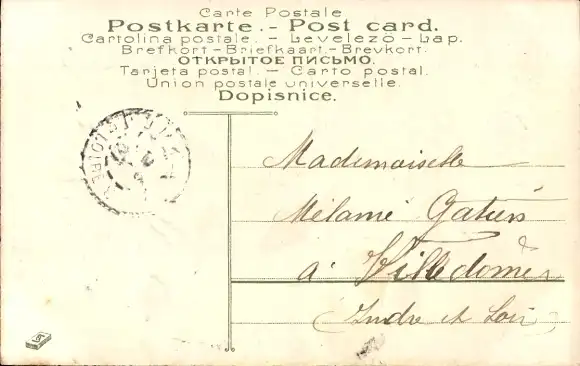 Carte Postale
Postkarte. - Post card.
Cartolina postale. - Levelezö - Lap.
Brefkort - Briefkaart. - Brevkort.
ОТКРЫТОЕ ПИСЬМО.
Tarjeta postal. - Carto postal.
Union postale universelle.
Dopisnice.
Mademoiselle
Mélanie
à Villedômer
Indre et Loir